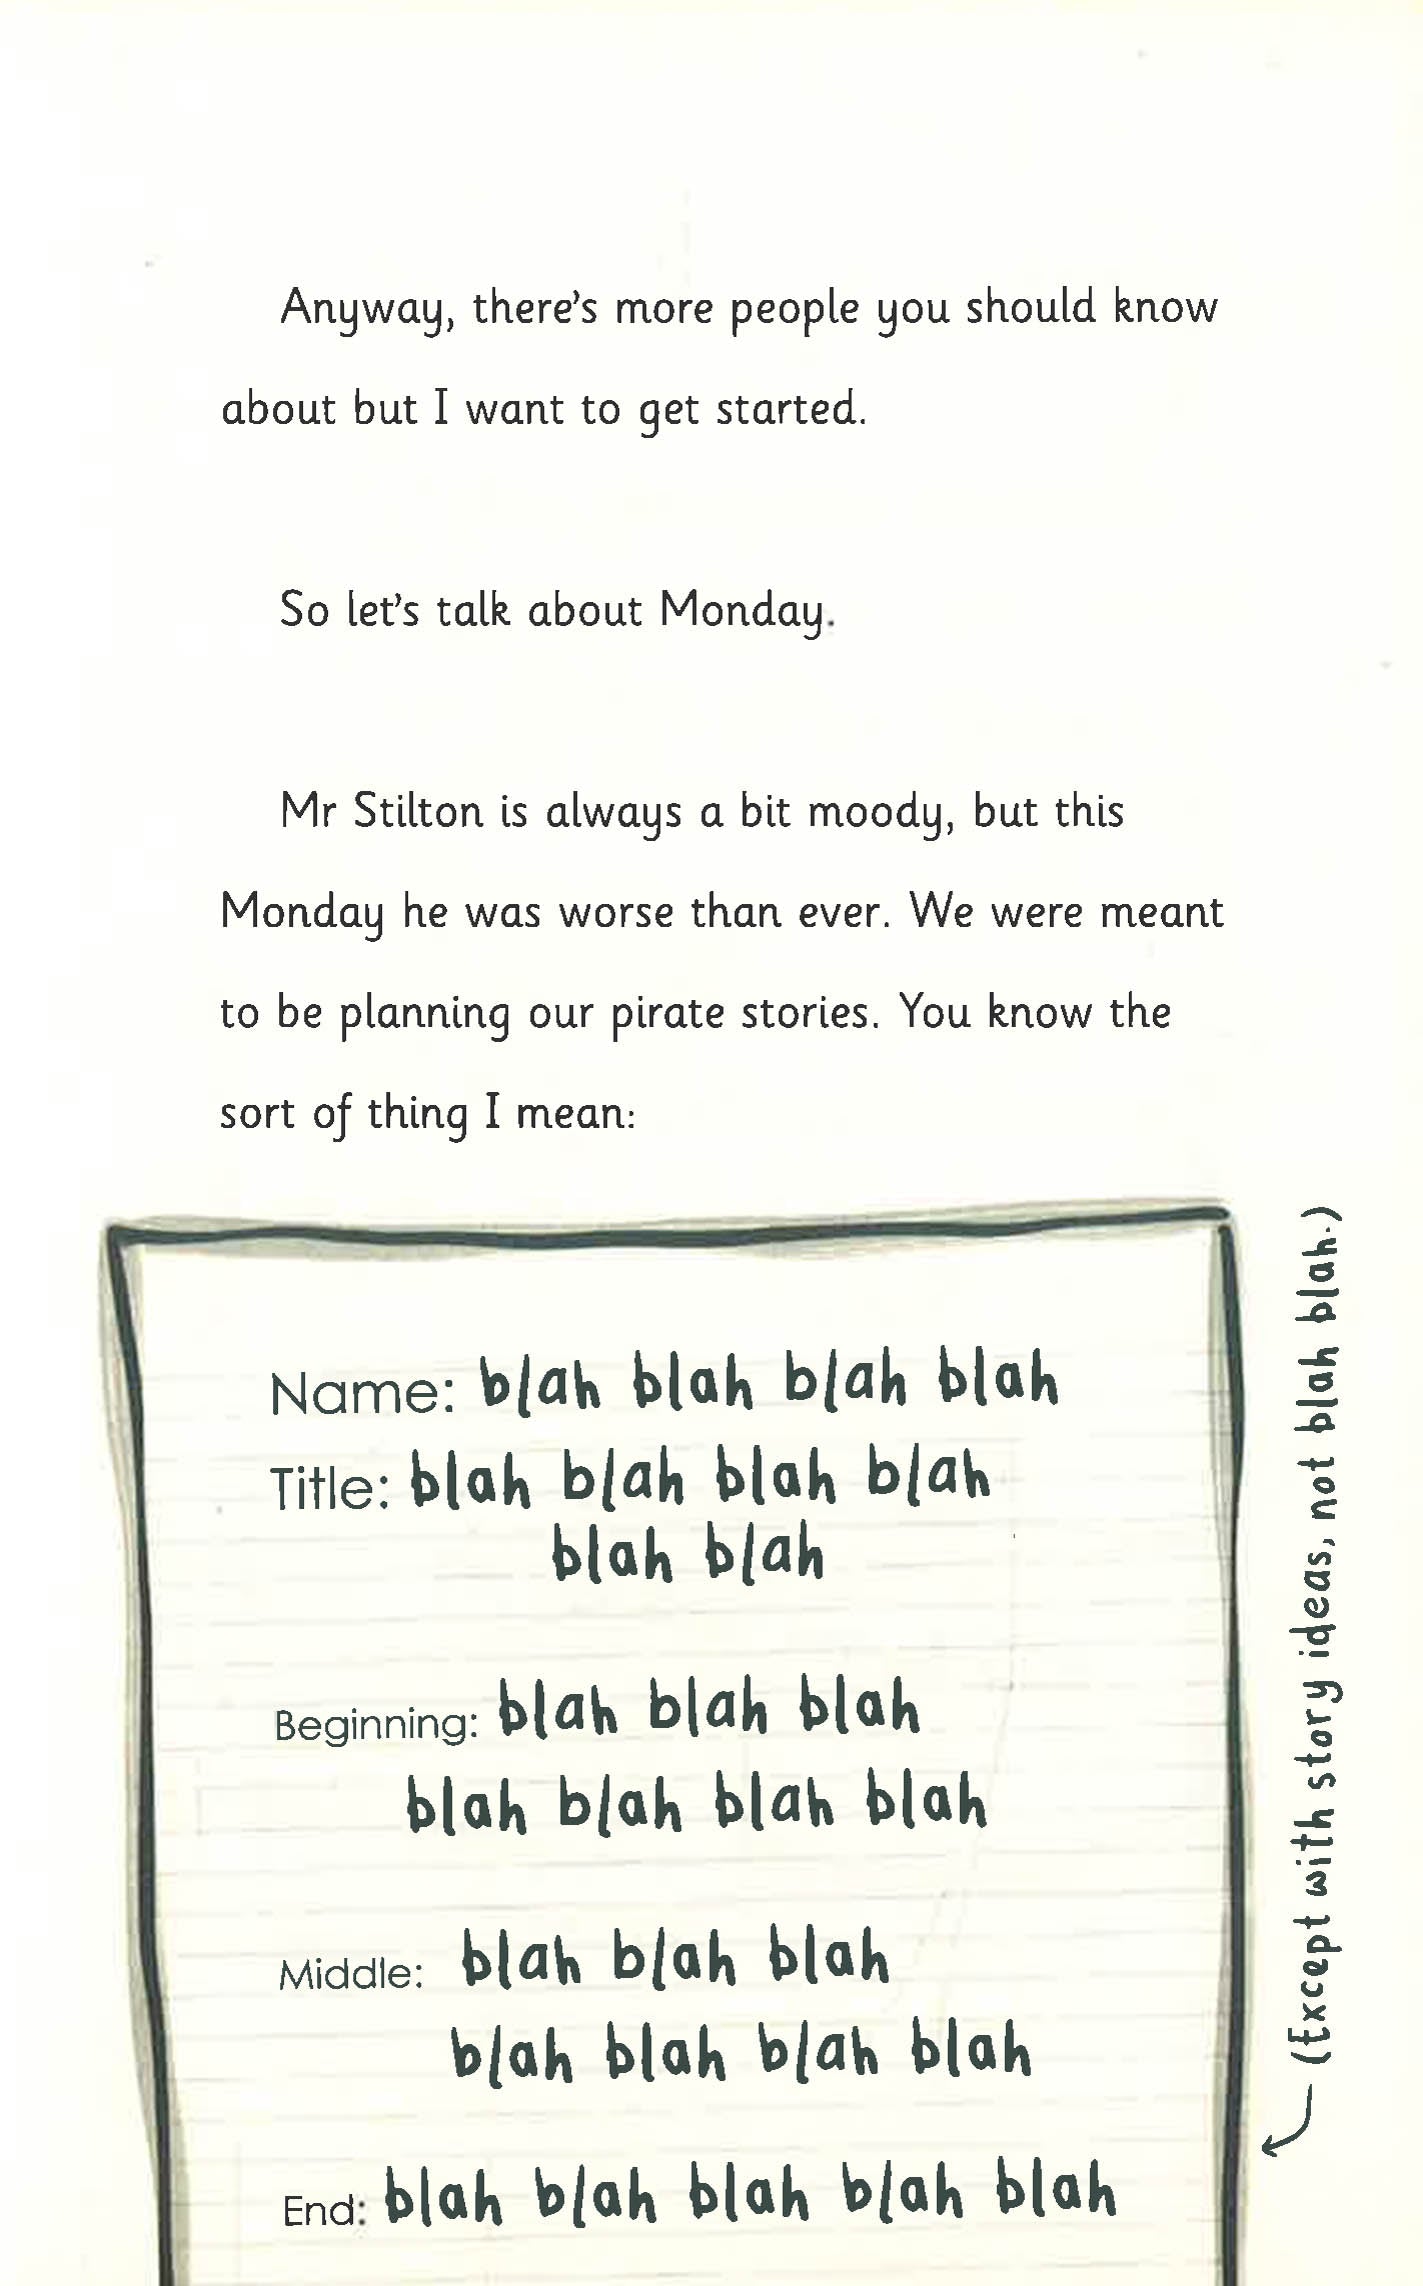 Anyway, there's more people you should know
about but I want to get started.
So let's talk about Monday.
Mr Stilton is always a bit moody, but this
Monday he was worse than ever. We were meant
to be planning our pirate stories. You know the
sort of thing I mean:
Name: blah blah blah blah
Title: blah blah blah blah
blah blah
Beginning: blah blah blah
blah blah blah blah
Middle: blah blah blah
blah blah blah blah
End: blah blah blah blah blah
(Except with story ideas, not blah blah.)